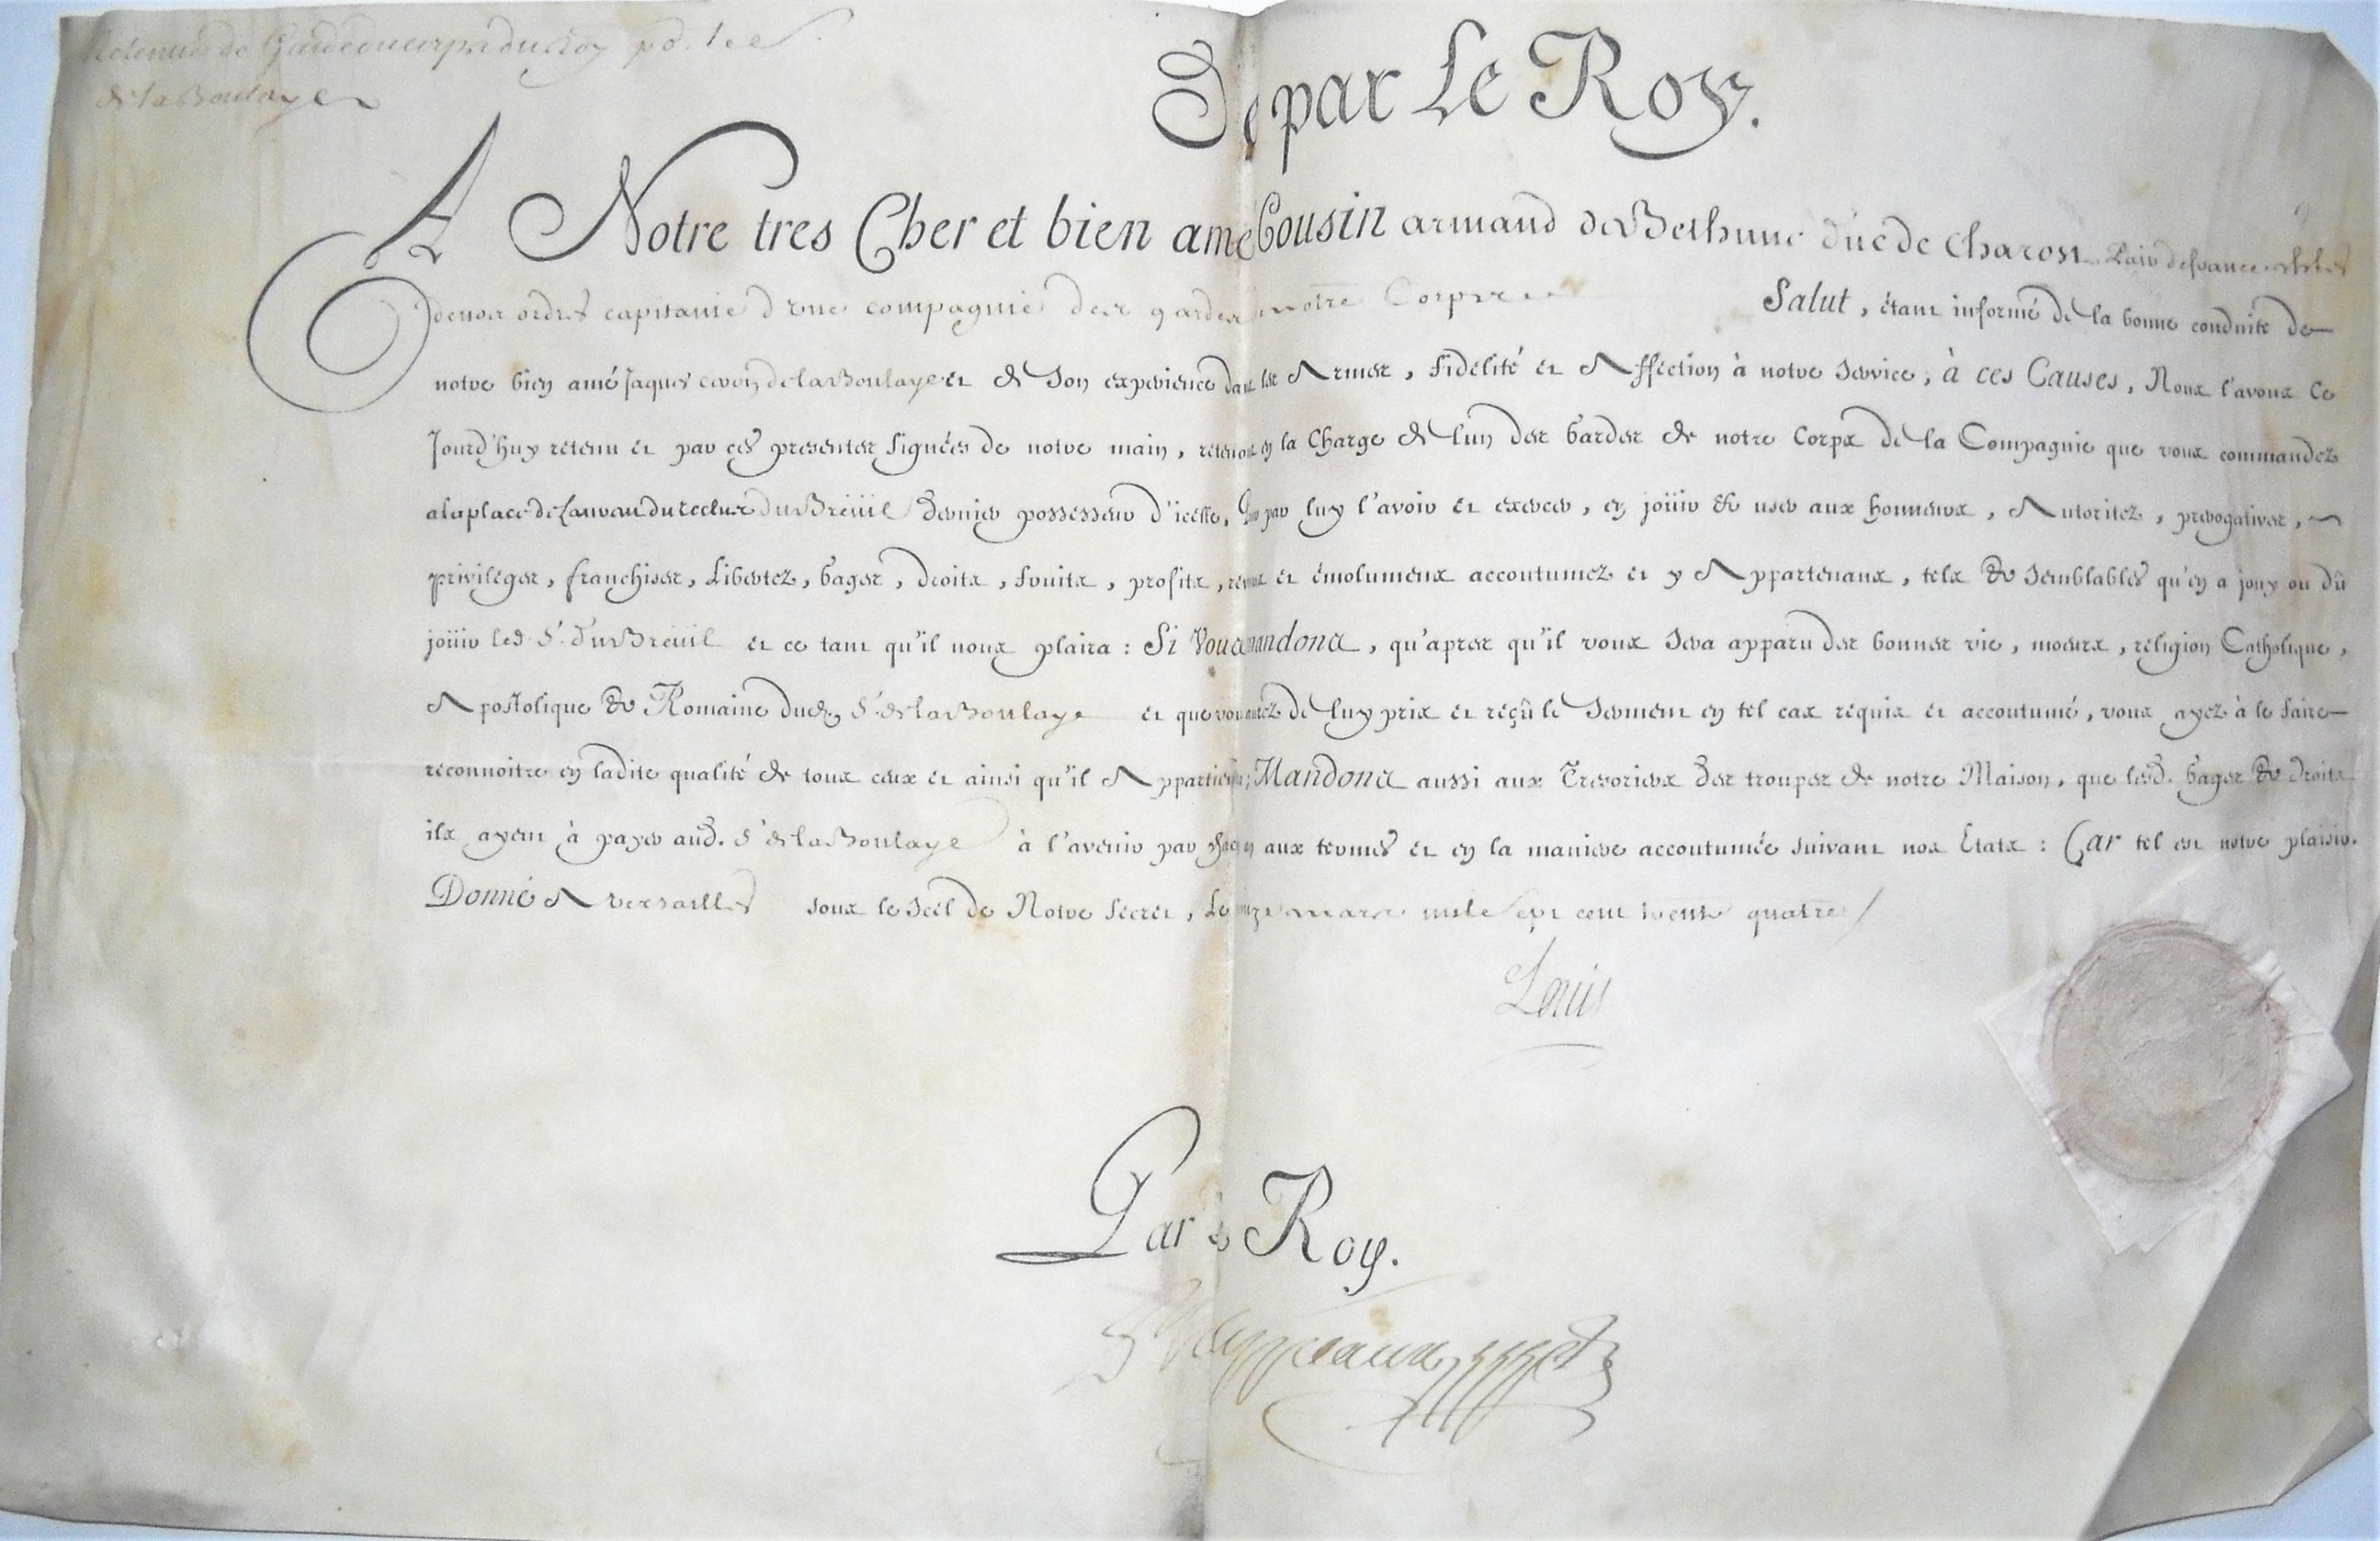 Retenue de Garde du corps du Roy po. le S.
de la Boulaye
De par Le Roy.
A Notre tres Cher et bien amé Cousin armand de Bethune duc de Charost Pair de france
de nos ordres capitaine d'une compagnie des gardes notre Corps Salut, étant informé de la bonne conduite de
notre bien amé Jaques de la Boulaye et de Son experience dans les Armes, fidelité et Affection à notre Service, à ces Causes, Nous l'avons Ce
Jourd'huy retenu et par ces presentes Signées de notre main, retenons en la Charge de l'un des Gardes de notre Corps de la Compagnie que vous commandez
a la place de du Breüil dernier possesseur d'icelle, Pour par luy l'avoir et exercer, en joüir & user aux honneurs, Autoritez, prerogatives,
privileges, franchises, Libertez, Gages, droits, fruits, profits, revenus et émolumens accoutumez et y Appartenans, tels & Semblables qu'en a jouy ou dû
joüir led. Sr. du Breüil et ce tant qu'il nous plaira : Si Vous mandons, qu'apres qu'il vous Sera apparu des bonnes vie, moeurs, réligion Catholique,
Apostolique & Romaine dud. Sr. de la Boulaye et que vous aurez de luy pris et réçû le Serment en tel cas réquis et accoutumé, vous ayez à le faire
réconnoitre en ladite qualité de tous ceux et ainsi qu'il Appartiendra; Mandons aussi aux Tresoriers des troupes de notre Maison, que lesd. Gages & droits
ils ayent à payer aud. Sr. de la Boulaye à l'avenir par chacun an aux termes et en la maniere accoutumée suivant nos Etats : Car tel est notre plaisir.
Donné A versailles sous le Scel de Notre Sécret, Le onze mars mile sept cent trente quatre /
Louis
Par le Roy.
Phelypeaux